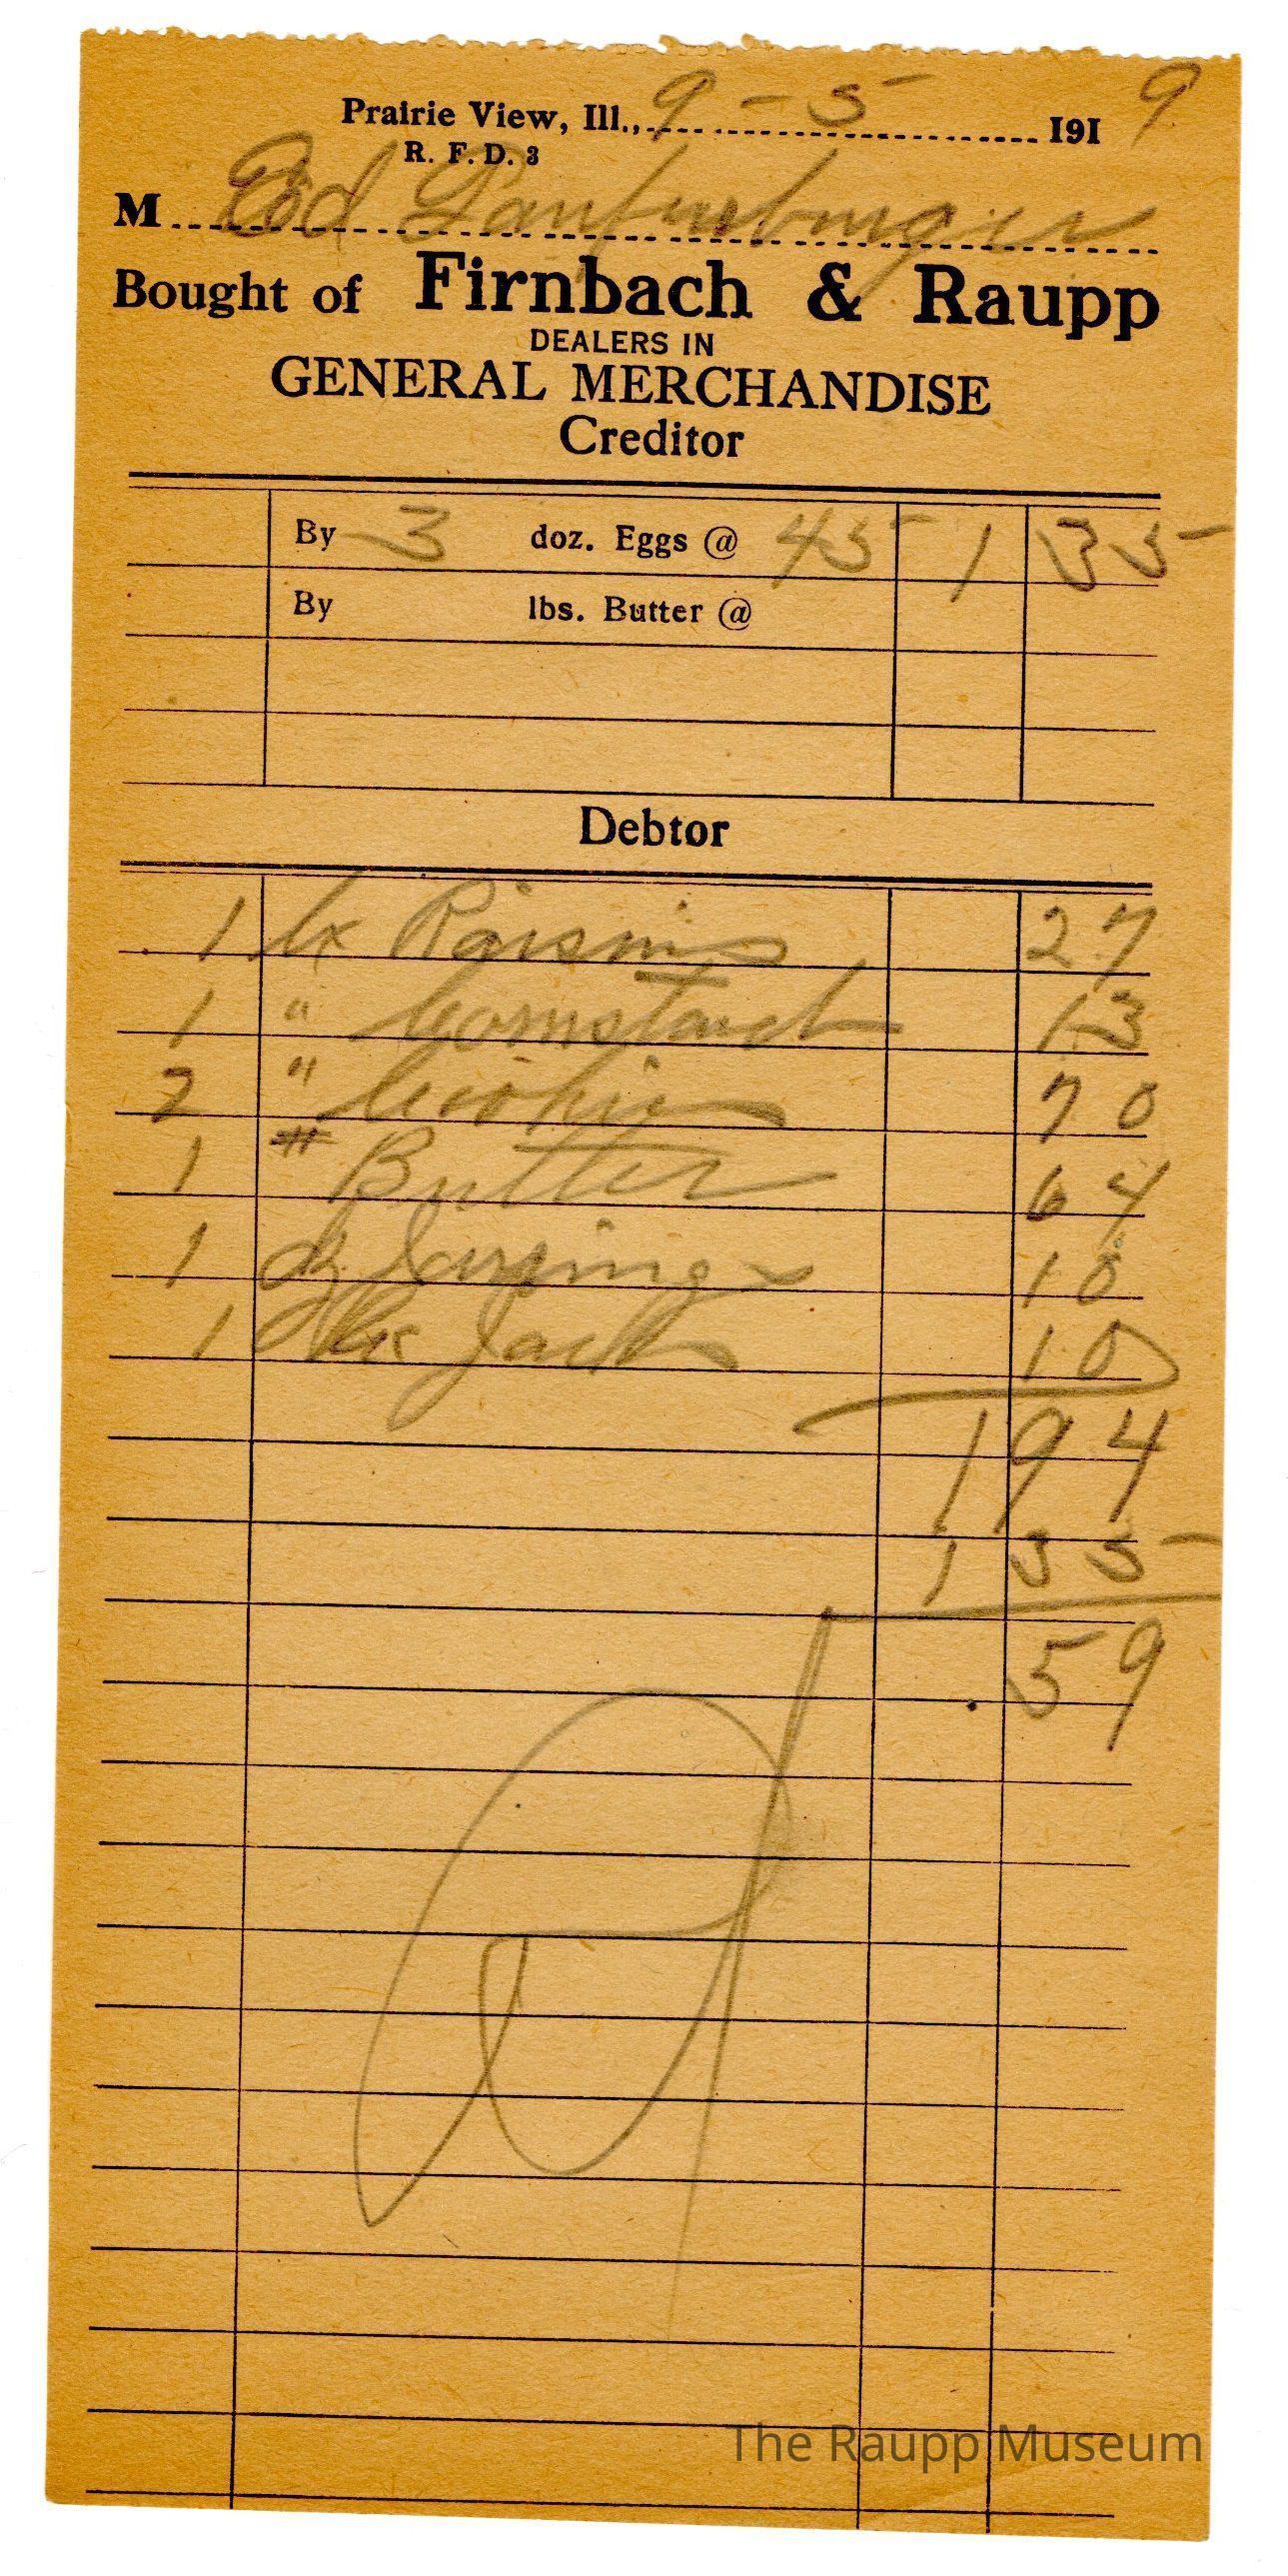 Prairie View, Ill., 9-5 1919
R. F. D. 3
M Ed Laufenburger
Bought of Firnbach & Raupp
DEALERS IN
GENERAL MERCHANDISE
Creditor
By 3 doz. Eggs @ 45 1 35
By lbs. Butter @
Debtor
1 bx Raisins 27
1 " Cornstarch 13
2 " Cookies 70
1 # Butter 64
1 dz 10
1 Jack 10
1 94
1 35
59
The Raupp Museum